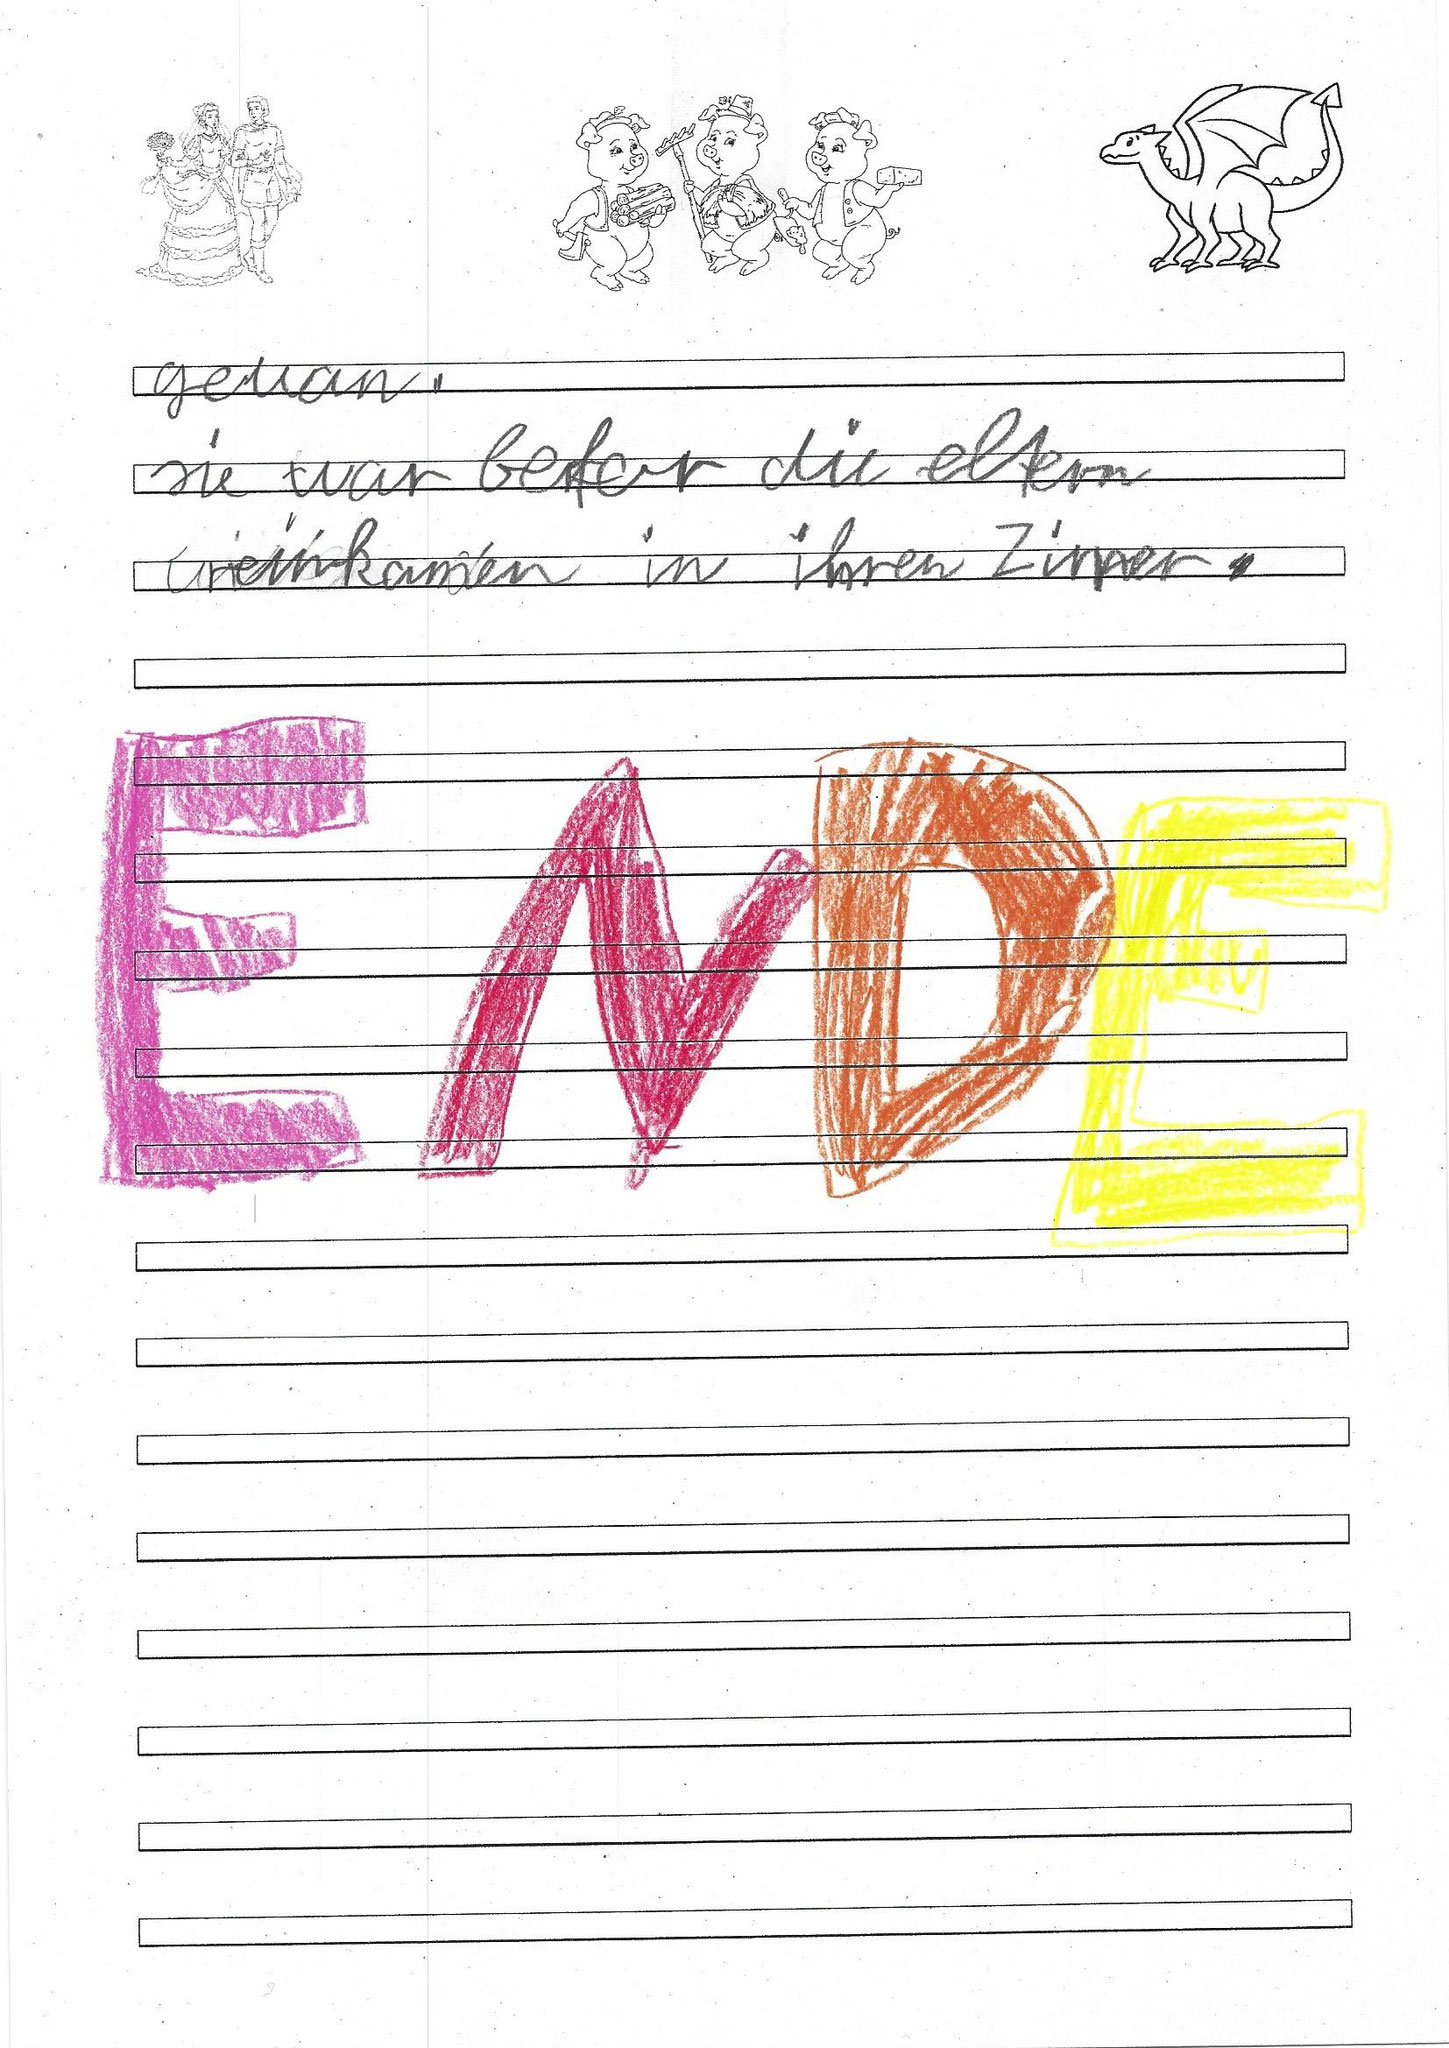 getan.
sie war befor die eltern
reinkamen in ihren Zimmer.
ENDE